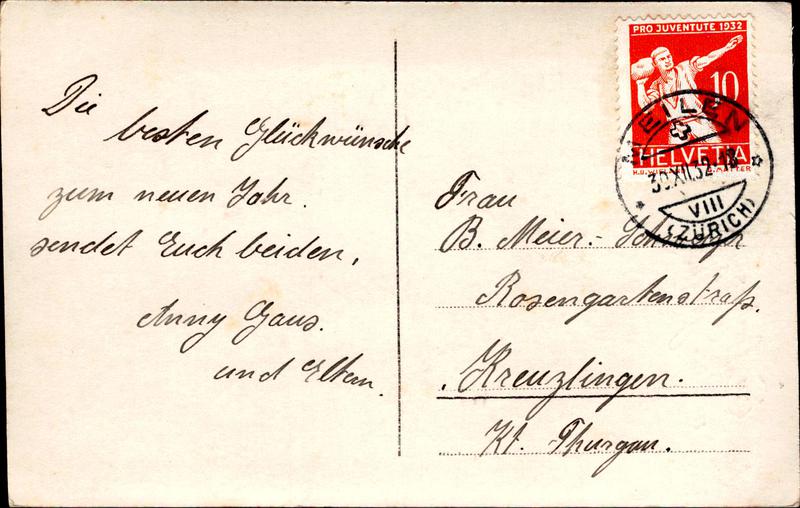 Die
besten Glückwünsche
zum neuen Jahr.
sendet Euch beiden,
Anny Gaus.
und Eltern.
PRO JUVENTUTE 1932
10
HELVETIA
MEILEN
30.XII.32.-18
VIII
(ZÜRICH)
Frau
B. Meier-
Rosengartenstraß.
Kreuzlingen.
Kt. Thurgau.